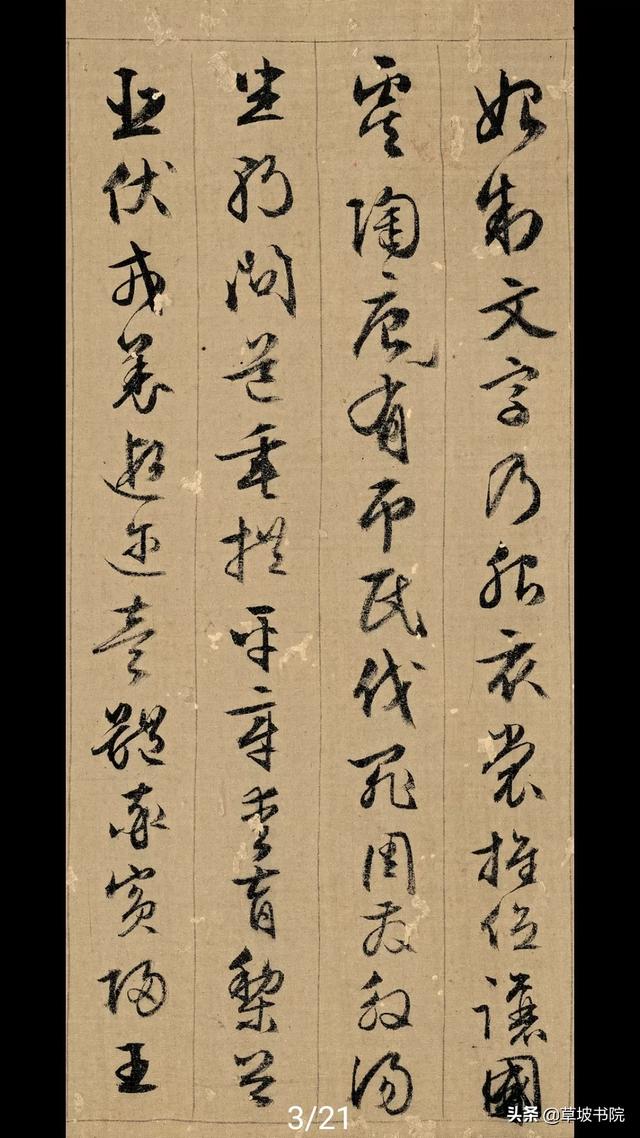 始制文字乃服衣裳推位讓國
虞陶唐有弔民伐罪周發殷湯
坐朝問道垂拱平章愛育黎首
臣伏戎羌遐邇壹體率賓歸王
3/21
头条 @草坡书院